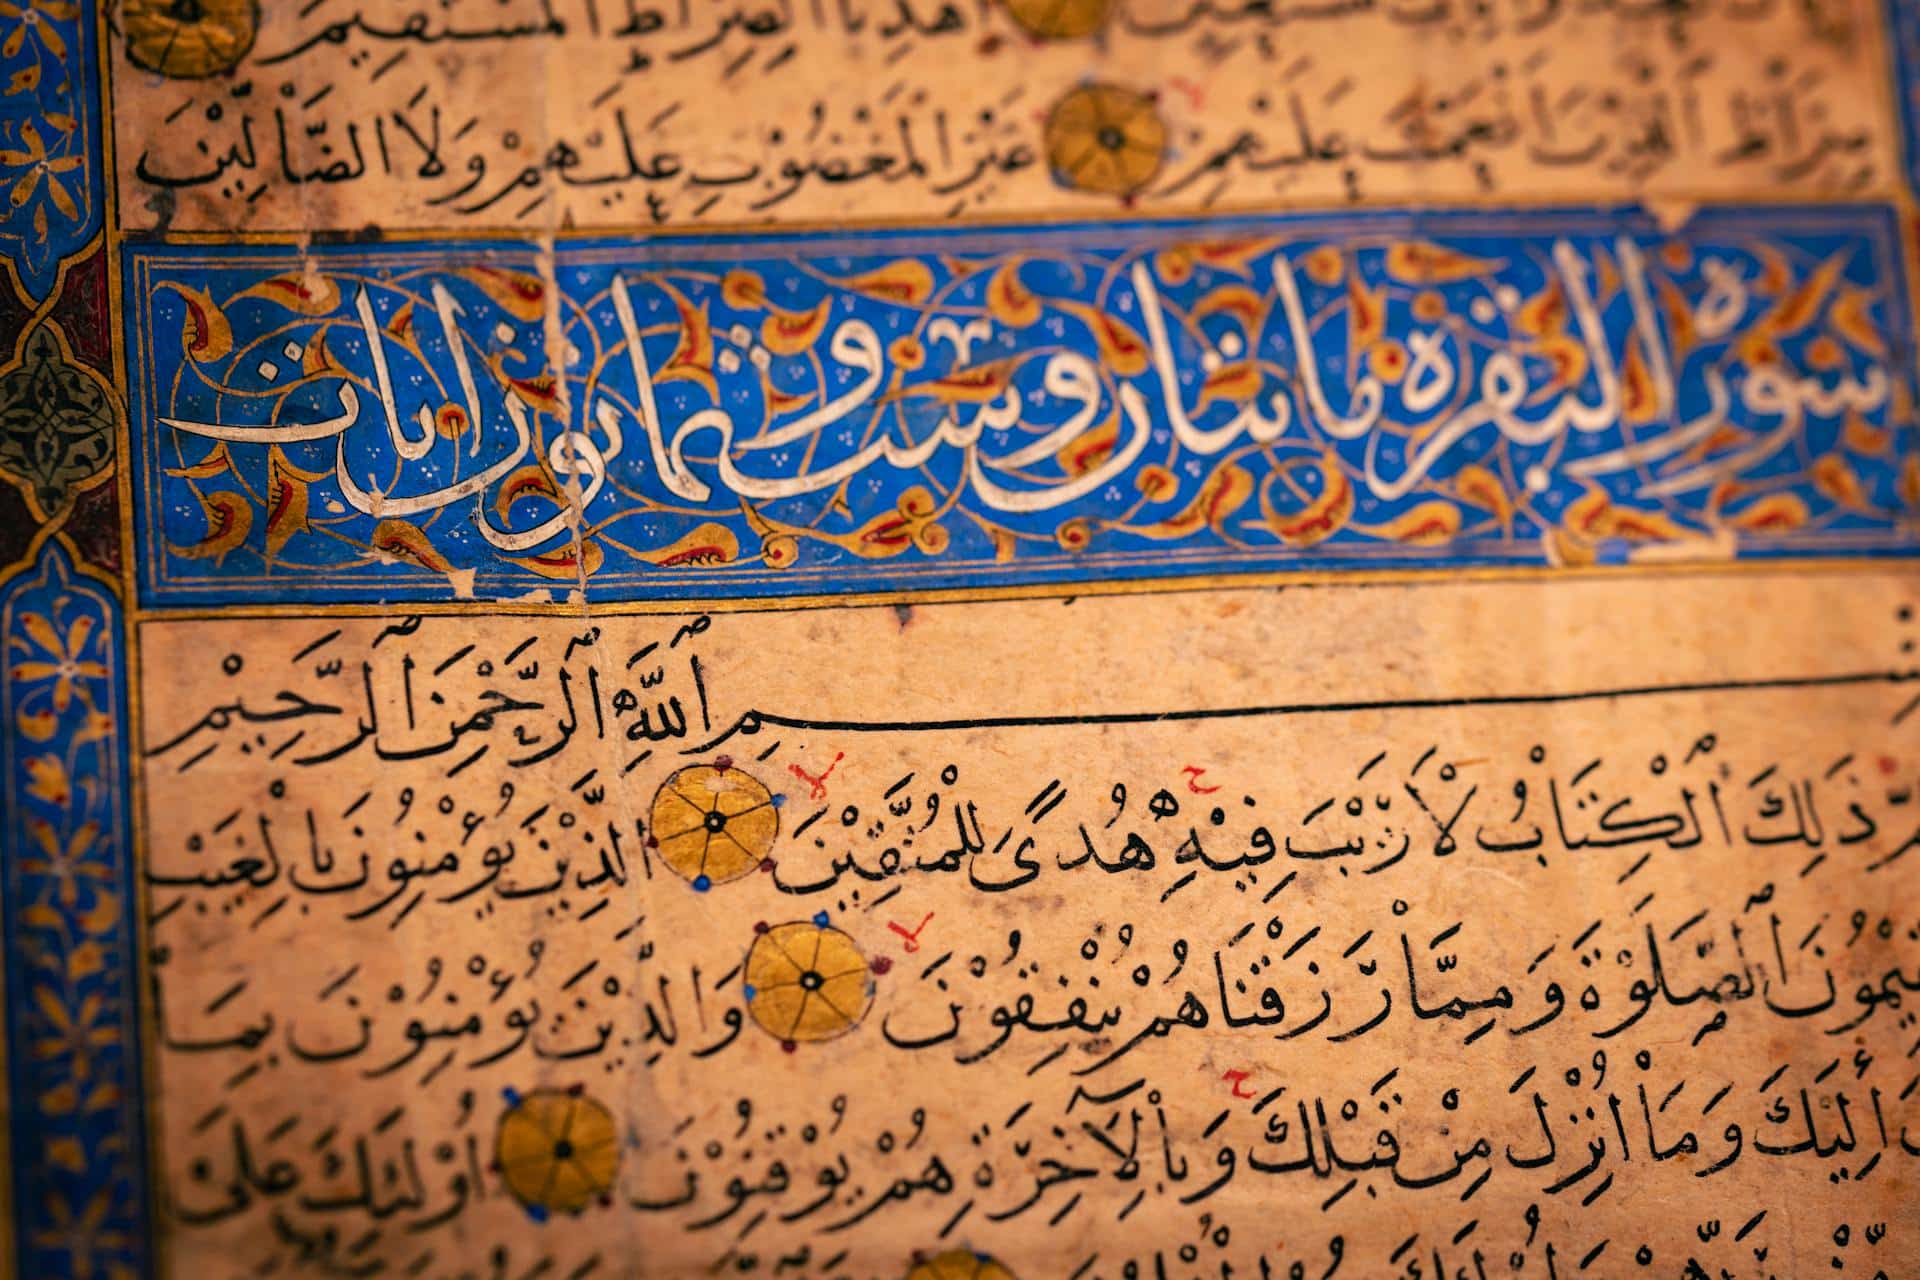 اهْدِنَا الصِّرَاطَ الْمُسْتَقِيمَ
صِرَاطَ الَّذِينَ أَنْعَمْتَ عَلَيْهِمْ غَيْرِ الْمَغْضُوبِ عَلَيْهِمْ وَلَا الضَّالِّيْنَ
سورة البقرة مايتان وست وثمانون ايات
بِسْمِ اللَّهِ الرَّحْمٰنِ الرَّحِيْمِ
ذَلِكَ الْكِتَابُ لَا رَيْبَ فِيْهِ هُدًى لِلْمُتَّقِيْنَ الَّذِيْنَ يُؤْمِنُونَ بِالْغَيْبِ
الصَّلَوٰةَ وَمِمَّا رَزَقْنَاهُمْ يُنْفِقُوْنَ وَالَّذِيْنَ يُؤْمِنُوْنَ بِمَا
إِلَيْكَ وَمَا أُنْزِلَ مِنْ قَبْلِكَ وَبِالْآخِرَةِ هُمْ يُوْقِنُوْنَ أُوْلٰئِكَ عَلَى